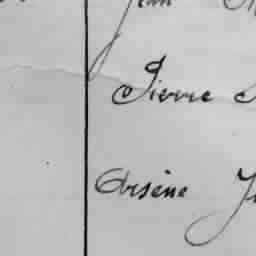 Jean
Pierre
Arsène